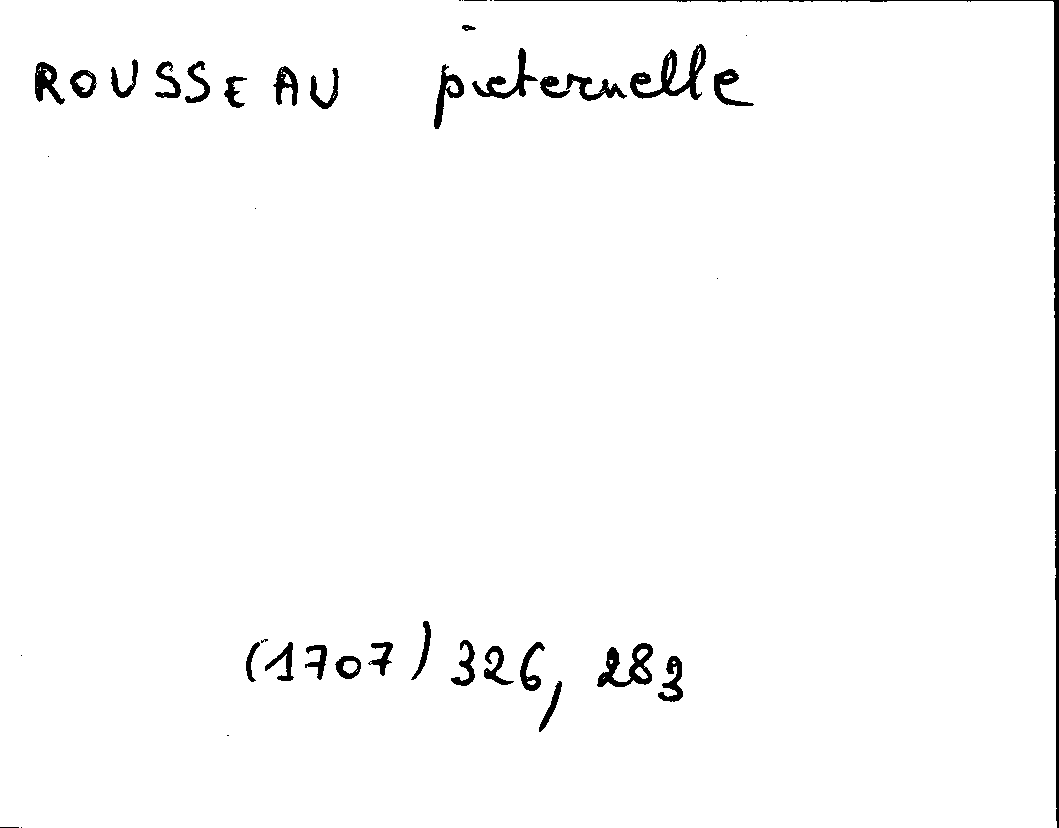 ROUSSEAU pieternelle
(1707) 326, 283